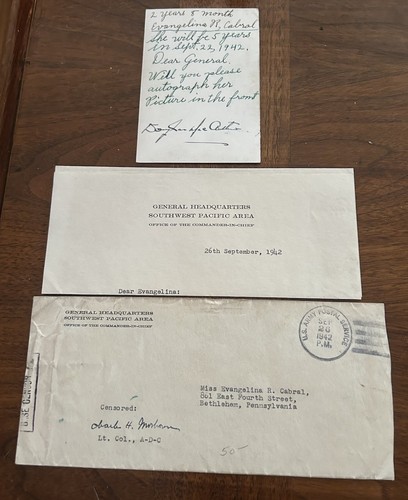 2 years 5 month
Evangelina R. Cabral
She will be 5 years
in Sept. 22, 1942.
Dear General.
Will you please
autograph her
Picture in the front
GENERAL HEADQUARTERS
SOUTHWEST PACIFIC AREA
OFFICE OF THE COMMANDER-IN-CHIEF
26th September, 1942
Dear Evangelina:
GENERAL HEADQUARTERS
SOUTHWEST PACIFIC AREA
OFFICE OF THE COMMANDER-IN-CHIEF
U.S. ARMY POSTAL SERVICE
SEP
26
1942
P.M.
Miss Evangelina R. Cabral,
561 East Fourth Street,
Bethlehem, Pennsylvania
Censored:
Charles H.
Lt. Col., A-D-C
50-